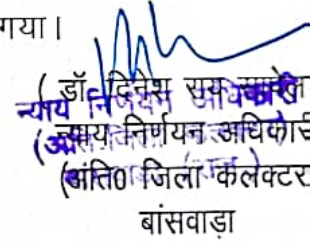 गया।
( डॉ. दिनेश राय सापेला
न्याय निर्णयन अधिकारी
न्याय निर्णयन अधिकारी
(अति0 जिला कलेक्टर
बांसवाड़ा